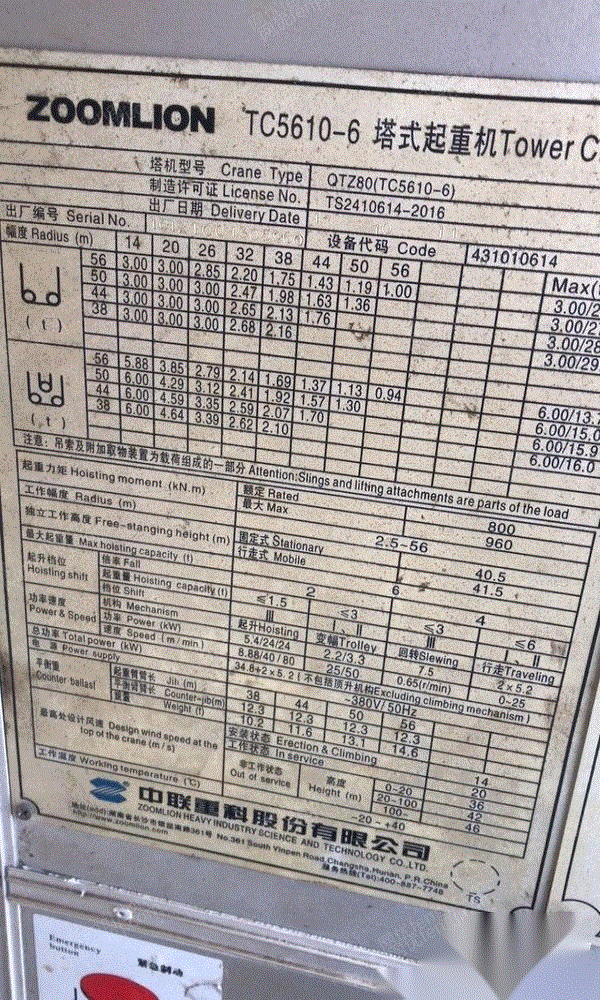 ZOOMLION TC5610-6 塔式起重机Tower C
塔机型号 Crane Type QTZ80(TC5610-6)
制造许可证 License No. TS2410614-2016
出厂日期 Delivery Date
出厂编号 Serial No. 设备代码 Code 431010614
幅度 Radius (m) 14 20 26 32 38 44 50 56 Max(
56 3.00 3.00 2.85 2.20 1.75 1.43 1.19 1.00 3.00/2
50 3.00 3.00 3.00 2.47 1.98 1.63 1.36 3.00/2
44 3.00 3.00 3.00 2.65 2.13 1.76 3.00/28
38 3.00 3.00 3.00 2.68 2.16 3.00/29
( t )
56 5.88 3.85 2.79 2.14 1.69 1.37 1.13 0.94 6.00/13.7
50 6.00 4.29 3.12 2.41 1.92 1.57 1.30 6.00/15.0
44 6.00 4.59 3.35 2.59 2.07 1.70 6.00/15.9
38 6.00 4.64 3.39 2.62 2.10 6.00/16.0
( t )
注意: 吊索及附加取物装置为载荷组成的一部分 Attention:Slings and lifting attachments are parts of the load
起重力矩 Hoisting moment (kN.m) 额定 Rated 800
最大 Max 960
工作幅度 Radius (m) 2.5-56
独立工作高度 Free-stanging height (m) 固定式 Stationary 40.5
行走式 Mobile 41.5
最大起重量 Max hoisting capacity (t) 6
起升档位 Hoisting shift 倍率 Fall 2 4
起重量 Hoisting capacity (t) ≤1.5 ≤3 ≤3 ≤6
档位 Shift Ⅲ Ⅰ、Ⅱ Ⅲ Ⅰ、Ⅱ
功率速度 Power & Speed 机构 Mechanism 起升Hoisting 变幅Trolley 回转Slewing 行走Traveling
功率 Power (kW) 5.4/24/24 2.2/3.3 7.5 2×5.2
速度 Speed (m/min) 8.88/40/80 25/50 0.65(r/min) 0~25
总功率 Total power (kW) 34.8+2×5.2 (不包括顶升机构Excluding climbing mechanism)
电 源 Power supply ~380V/50Hz
平衡重 Counter ballast 起重臂臂长 Jib (m) 38 44 50 56
平衡臂臂长 Counter-jib(m) 12.3 12.3 12.3 12.3
重量 Weight (t) 10.2 11.6 13.1 14.6
最高处设计风速 Design wind speed at the top of the crane (m/s) 安装状态 Erection & Climbing 14
工作状态 In service 20
非工作状态 Out of service 高度 Height (m) 0-20 36
20-100 42
100- 46
工作温度 Working temperature (℃) -20 - +40
中联重科股份有限公司
ZOOMLION HEAVY INDUSTRY SCIENCE AND TECHNOLOGY CO.,LTD.
地址(add):湖南省长沙市银盆南路361号 No.361 South Yinpen Road,Changsha,Hunan, P.R.China
http://www.zoomlion.com 服务热线(Tel):400-887-7748
TS
Emergency
button
紧急制动